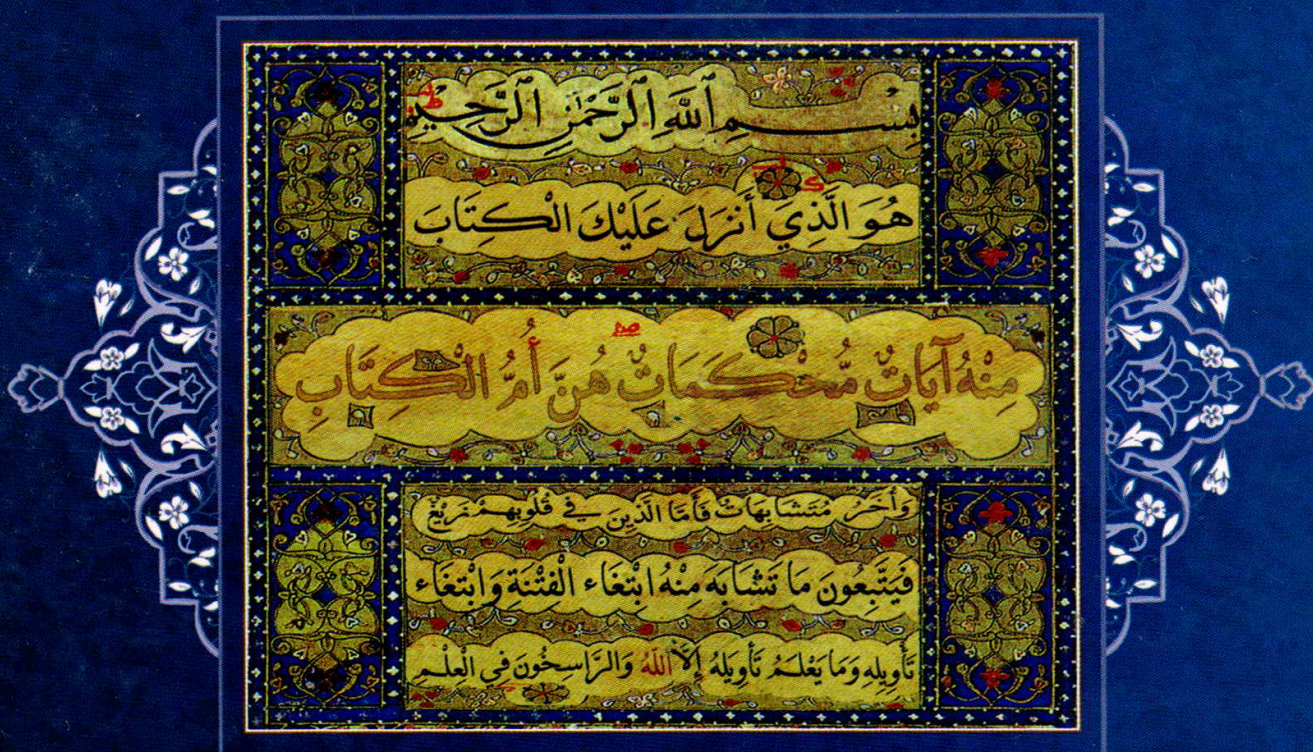 بِسْمِ ٱللَّهِ ٱلرَّحْمَٰنِ ٱلرَّحِيمِ
هُوَ الَّذِي أَنْزَلَ عَلَيْكَ الْكِتَابَ
مِنْهُ آيَاتٌ مُحْكَمَاتٌ هُنَّ أُمُّ الْكِتَابِ
وَأُخَرُ مُتَشَابِهَاتٌ فَأَمَّا الَّذِينَ فِي قُلُوبِهِمْ زَيْغٌ
فَيَتَّبِعُونَ مَا تَشَابَهَ مِنْهُ ابْتِغَاء الْفِتْنَةِ وَابْتِغَاء
تَأْوِيلِهِ وَمَا يَعْلَمُ تَأْوِيلَهُ إِلَّا اللَّهُ وَالرَّاسِخُونَ فِي الْعِلْمِ